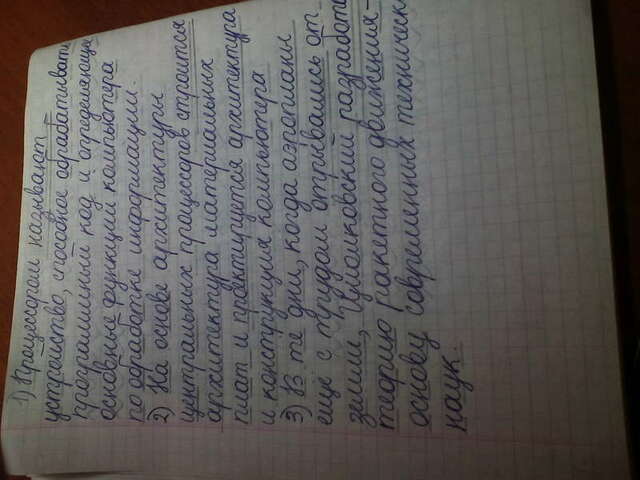 1) Процессором называют
устройство, способное обрабатывать
программный код и определяющее
основные функции компьютера
по обработке информации.
2) На основе архитектуры
центральных процессоров строится
архитектура материальных
плат и проектируется архитектура
и конструкция компьютера
3) В те дни, когда аэропланы
еще с трудом отрывались от
земли, Циолковский разработал
теорию ракетного движения -
основу современных технических
наук.